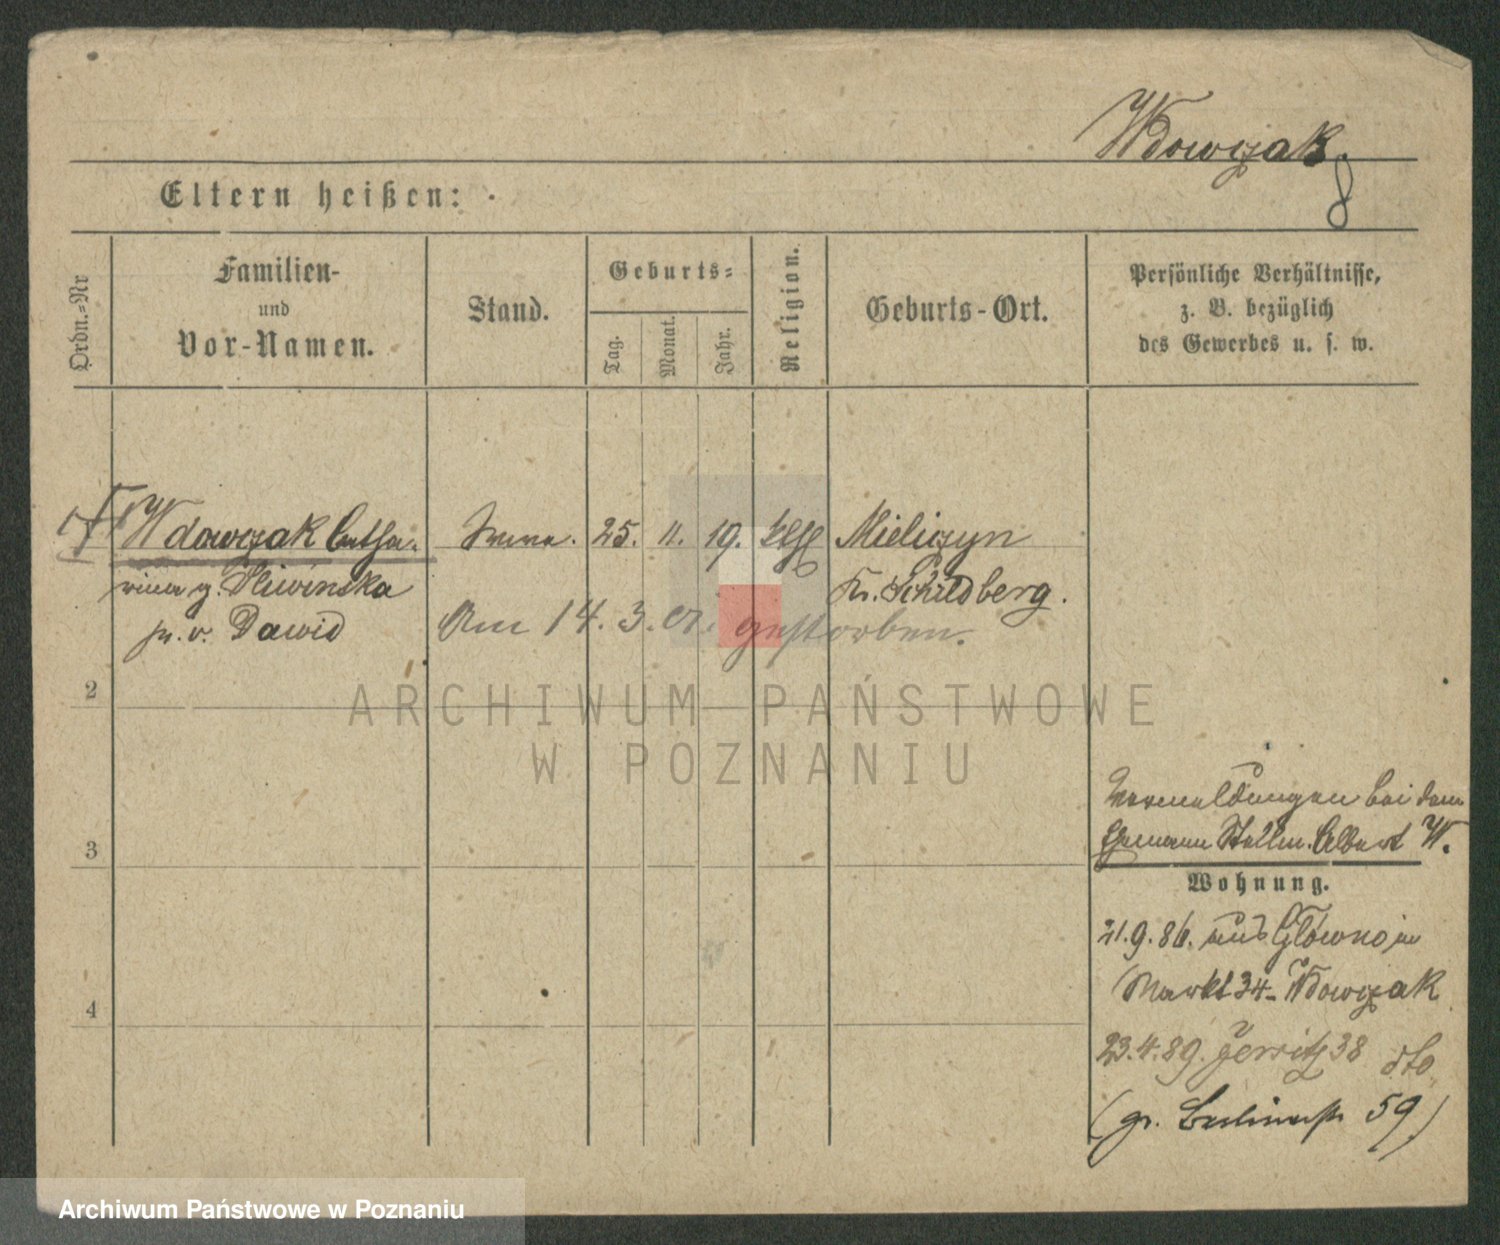 Wdowczak.
8
Eltern heißen:
Ordn.=Nr
Familien-
und
Vor-Namen.
Stand.
Geburts=
Tag.
Monat.
Jahr.
Religion.
Geburts-Ort.
Persönliche Verhältnisse,
z. B. bezüglich
des Gewerbes u. s. w.
1 † Wdowczak Catha- 25. 11. 19. kath Mieliczyn
rina g. Sliwinska Kr. Schildberg.
fr. v. Dawid Am 14. 3. 01. gestorben.
2
ARCHIWUM PAŃSTWOWE
W POZNANIU
Vermeldungen bei dem
3
Ehemann Stellm. Albert W.
Wohnung.
21.9.86. aus Główno in
Markt 34 - Wdowczak
4
23.4.89. Jersitz 38 dto
(gr. Berlinerstr 59)
Archiwum Państwowe w Poznaniu